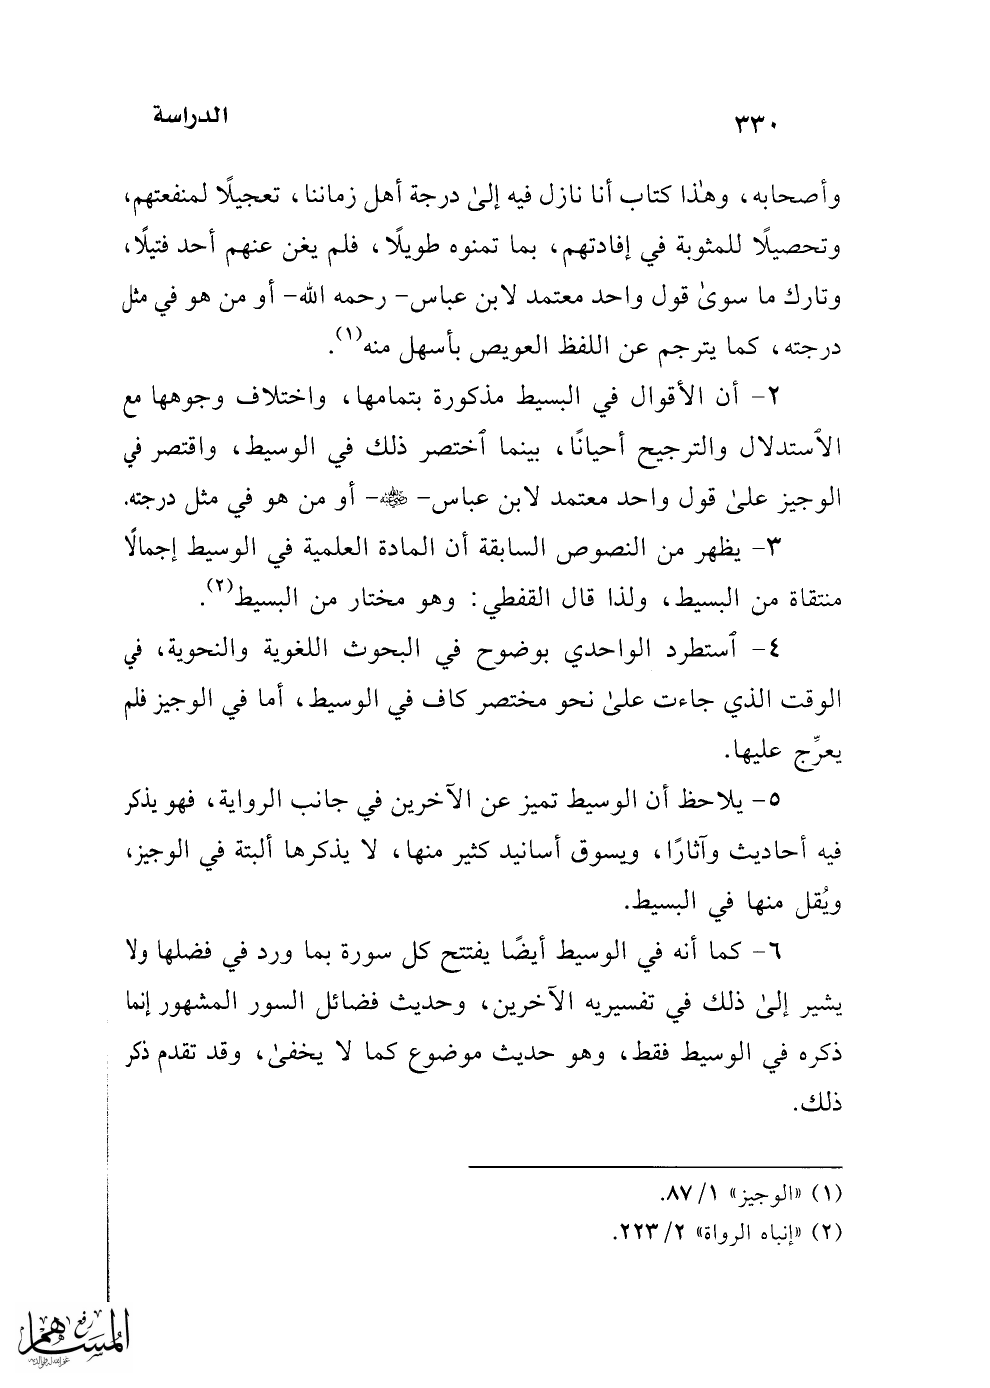 ٣٣٠ الدراسة
وأصحابه، وهٰذا كتاب أنا نازل فيه إلىٰ درجة أهل زماننا، تعجيلًا لمنفعتهم،
وتحصيلًا للمثوبة في إفادتهم، بما تمنوه طويلًا، فلم يغن عنهم أحد فتيلًا،
وتارك ما سوىٰ قول واحد معتمد لابن عباس- رحمه الله- أو من هو في مثل
درجته، كما يترجم عن اللفظ العويص بأسهل منه(١).
٢- أن الأقوال في البسيط مذكورة بتمامها، واختلاف وجوهها مع
الٱستدلال والترجيح أحيانًا، بينما ٱختصر ذلك في الوسيط، واقتصر في
الوجيز علىٰ قول واحد معتمد لابن عباس- رضي الله عنه- أو من هو في مثل درجته.
٣- يظهر من النصوص السابقة أن المادة العلمية في الوسيط إجمالًا
منتقاة من البسيط، ولذا قال القفطي: وهو مختار من البسيط(٢).
٤- ٱستطرد الواحدي بوضوح في البحوث اللغوية والنحوية، في
الوقت الذي جاءت علىٰ نحو مختصر كاف في الوسيط، أما في الوجيز فلم
يعرِّج عليها.
٥- يلاحظ أن الوسيط تميز عن الآخرين في جانب الرواية، فهو يذكر
فيه أحاديث وآثارًا، ويسوق أسانيد كثير منها، لا يذكرها ألبتة في الوجيز،
ويُقل منها في البسيط.
٦- كما أنه في الوسيط أيضًا يفتتح كل سورة بما ورد في فضلها ولا
يشير إلىٰ ذلك في تفسيريه الآخرين، وحديث فضائل السور المشهور إنما
ذكره في الوسيط فقط، وهو حديث موضوع كما لا يخفىٰ، وقد تقدم ذكر
ذلك.
(١) «الوجيز» ١/ ٨٧.
(٢) «إنباه الرواة» ٢/ ٢٢٣.
رفع
المساهم